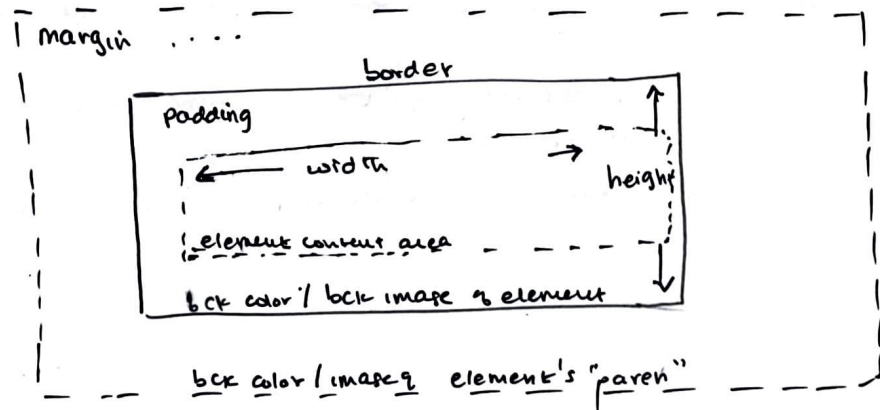 margin ....
border
padding
width
height
element content area
bck color / bck image of element
bck color / image of element's "paren"